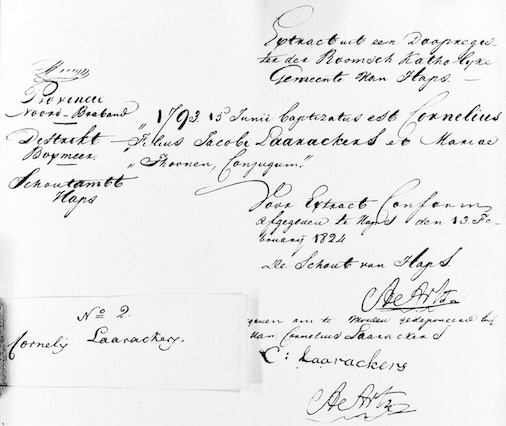 Extract uit een Doopregis-
ter der Roomsch Katholyke
Gemeente van Haps.
Provincie
Noord-Braband
Destrikt
Boxmeer.
Schoutambt
Haps
"1793. 15 Junii baptizatus est Cornelius
Filius Jacobi Laarackers et Mariae
"Thoonen, Conjugum."
Voor Extract Conform
Afgegeven te Haps den 13. Fe-
bruarij 1824
De Schout van Haps
AeArts
No 2.
Cornelis Laarackers.
geven om te worden gedeponeerd bij
van Cornelius Laarackers
C: Laarackers
AeArts